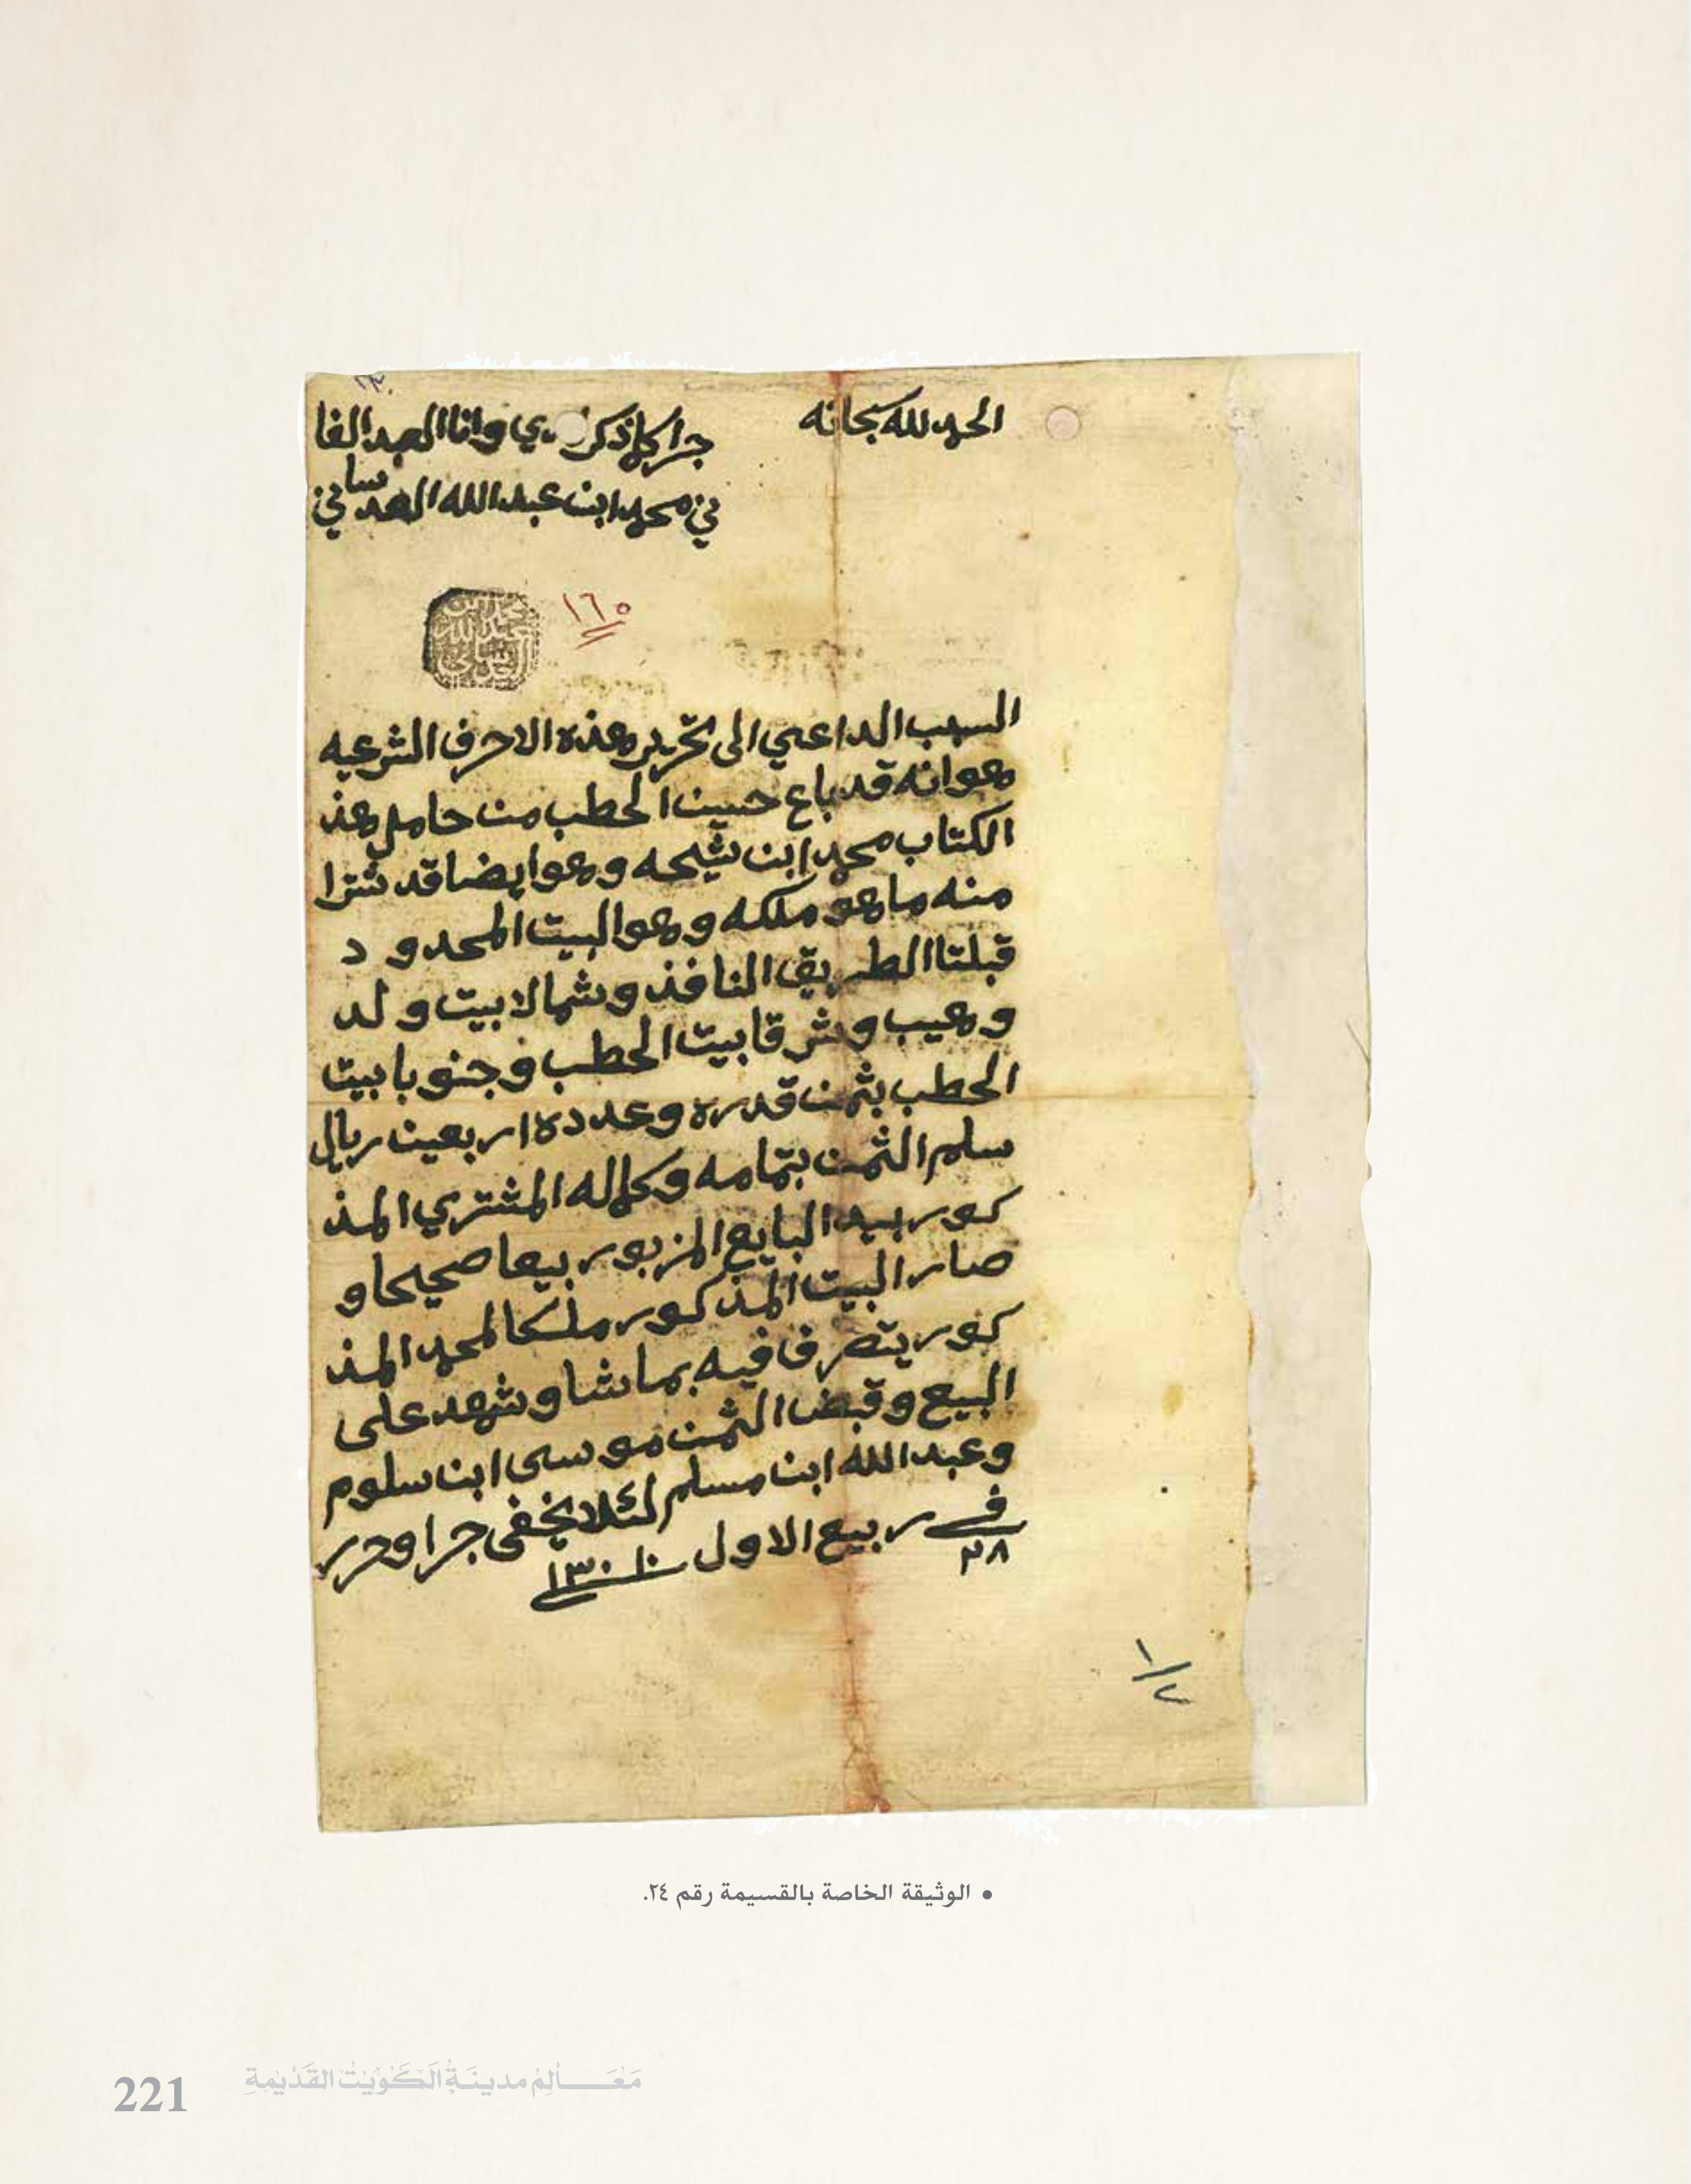 الحمد لله سبحانه
جرا كلما ذكر لدي وانا العبد الفا
ني محمد ابن عبدالله العدساني
١٦٥
السبب الداعي الى تحرير هذه الاحرف الشرعيه
هو انه قد باع حسين الحطب من حامل هذ
الكتاب محمد ابن شيحه وهو ايضا قد شترا
منه ما هو ملكه وهو البيت المحدو د
قبلتا الطريق النافذ وشمالا بيت ولد
وهيب وشرقا بيت الحطب وجنوبا بيت
الحطب بثمن قدره وعدده اربعين ريال
سلم الثمن بتمامه وكماله المشتري المذ
كور بيد البايع المزبور بيعا صحيحا و
صار البيت المذكور ملكا لمحمد المذ
كور يتصرف فيه بما شا وشهد على
البيع وقبض الثمن موسى ابن سلوم
وعبدالله ابن مسلم لئلا يخفى جرا وحرر
في ٢٨ ربيع الاول سنة ١٣٠١
١/٧
• الوثيقة الخاصة بالقسيمة رقم ٢٤.
221 مَعَـالِم مدينَة الكُوَيْت القَدْيمة